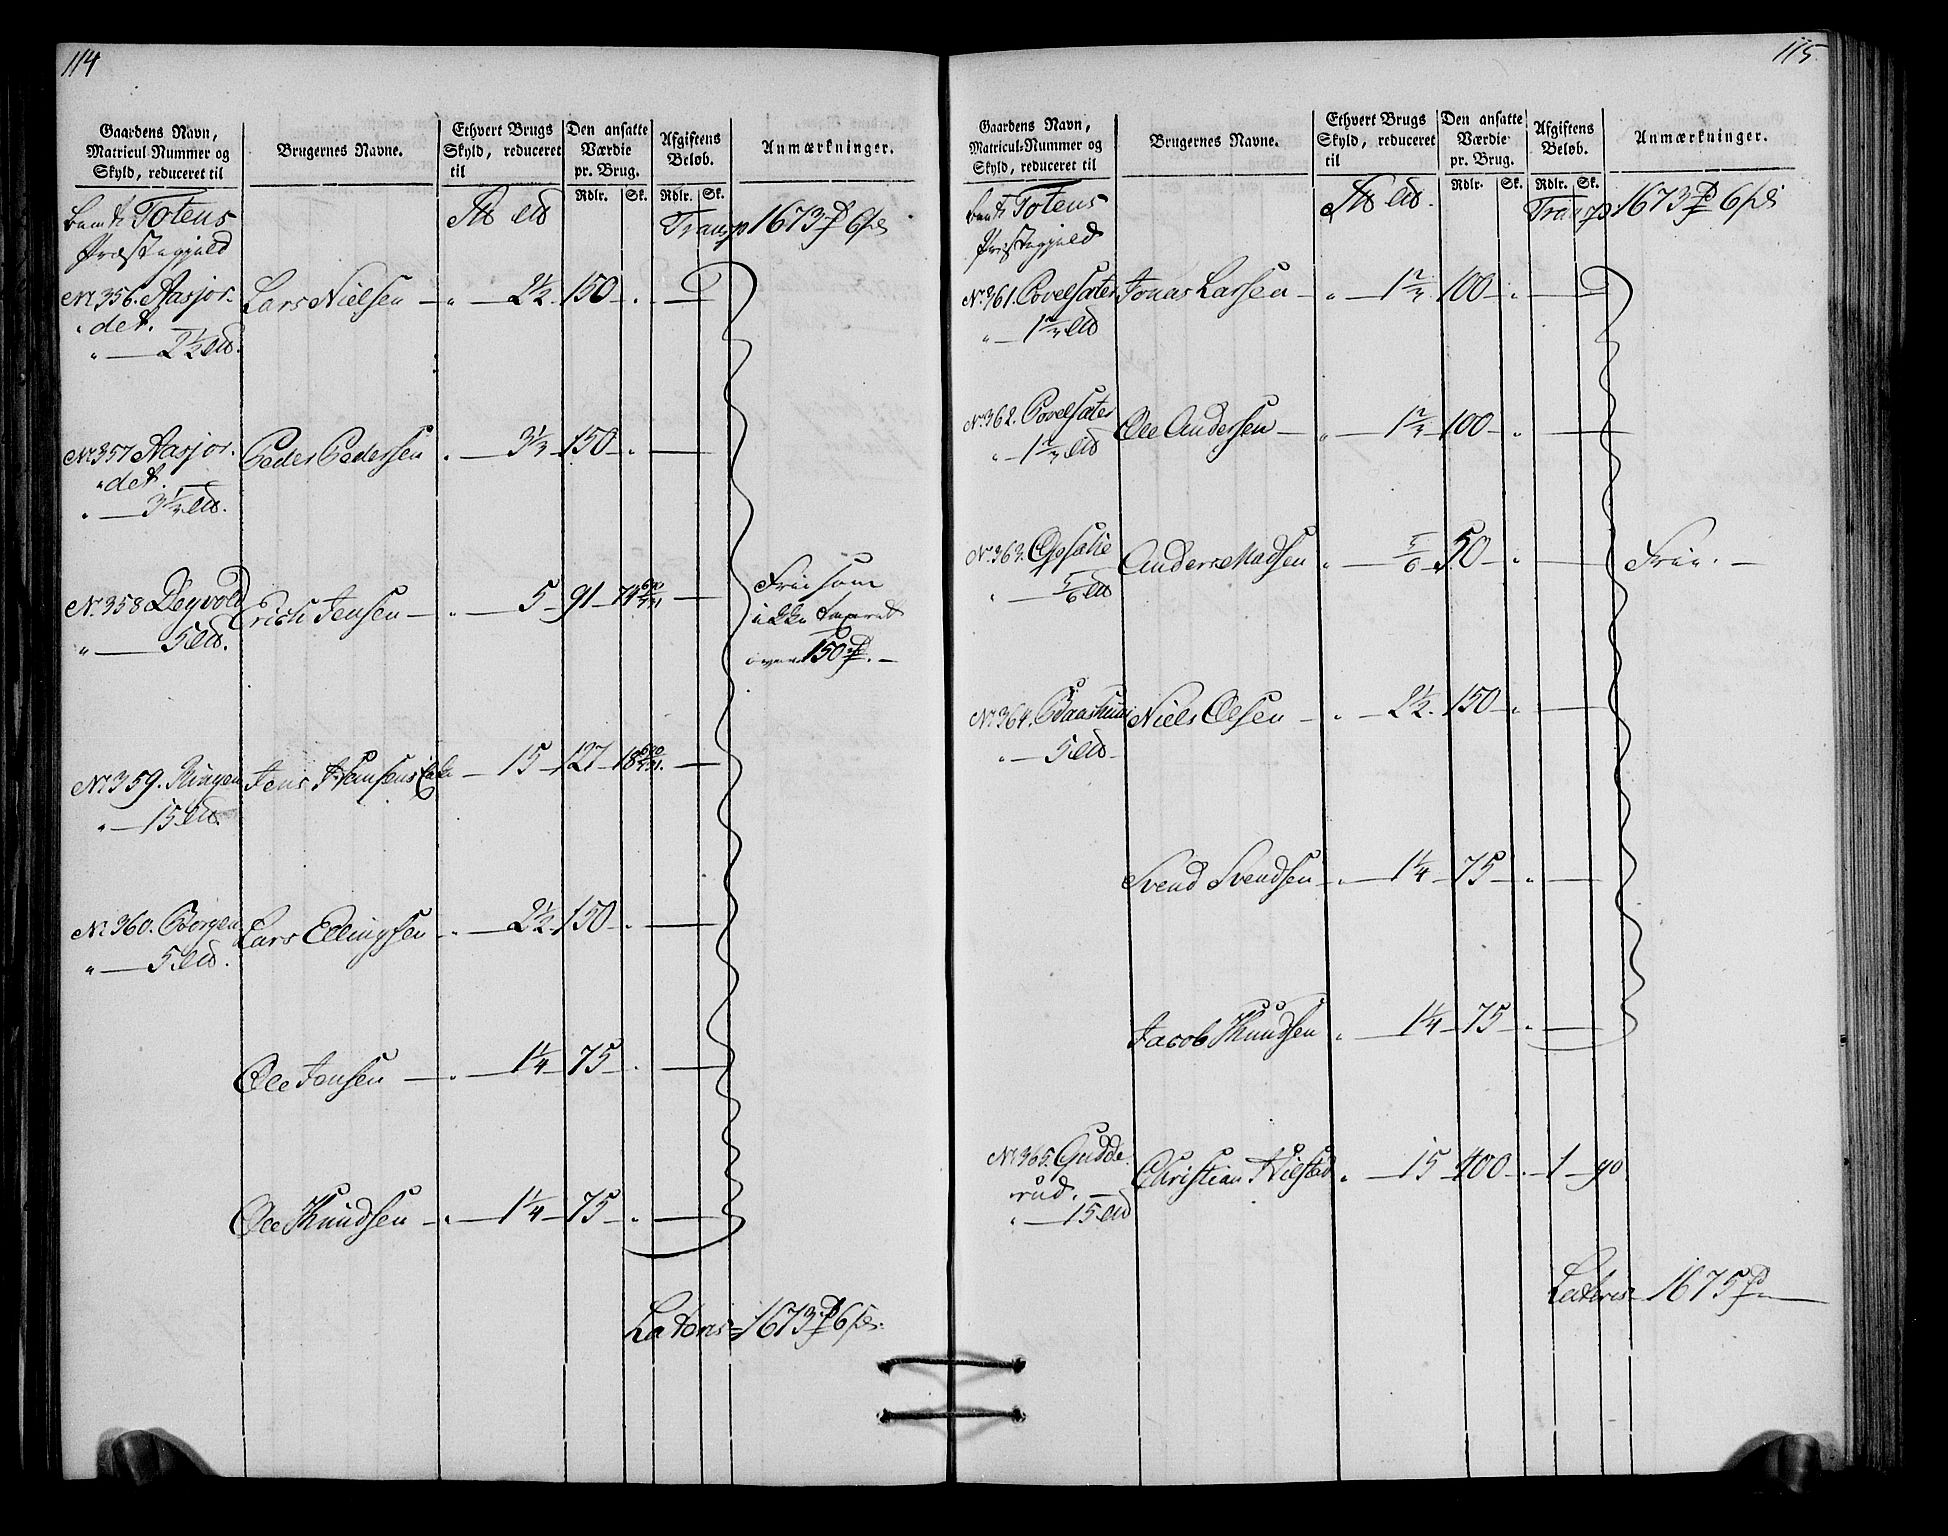 114
Gaardens Navn, Matricul-Nummer og Skyld, reduceret til
Brugernes Navne.
Ethvert Brugs Skyld, reduceret til
Den ansatte Værdie pr. Brug.
Afgiftens Beløb.
Anmærkninger.
Rdlr. Sk. Rdlr. Sk.
Totens
Præstegjeld
Transp 1673 6
No 356. Aasjor-
det.
" — 2½
Lars Nielsen — " — 2½ 150 — " —
No 357 Aasjor-
det.
" — 3⅓
Peder Pedersen " — 3⅓ 150 — " —
No 358
" — 5
Erich Jensen — " — 5 — 91 — 74
Frie som
ikke taxeret
over 150
No 359. Ringen
" — 15
Jens — 15 — 127 — 18
No 360. Borgen
" — 5
Lars Ellingsen — " — 2½ 150 — " —
Ole Jonsen — " — 1¼ 75 — " —
Ole Knudsen — " — 1¼ 75 — " —
Lateris = 1673 6
115
Gaardens Navn, Matricul-Nummer og Skyld, reduceret til
Brugernes Navne.
Ethvert Brugs Skyld, reduceret til
Den ansatte Værdie pr. Brug.
Afgiftens Beløb.
Anmærkninger.
Rdlr. Sk. Rdlr. Sk.
Totens
Præstegjeld
Transp 1673 6
No 361. Povelsæter
" — 1⅔
Jonas Larsen — " — 1⅔ 100 — " —
No 362. Povelsæter
" — 1⅔
Ole Andersen — " — 1⅔ 100 — " —
No 363.
" — 5/6
Anders Madsen " — 5/6 — 50 — " — Frie. —
No 364.
" — 5
Niels Olsen — " — 2½ 150 — " —
Svend Svendsen — " — 1¼ 75 — " —
Jacob Knudsen " — 1¼ 75 — " —
No 365. Gudde-
rud. —
" — 15
Christian " — 15 — 400 — " — 1 — 90
Lateris = 1675